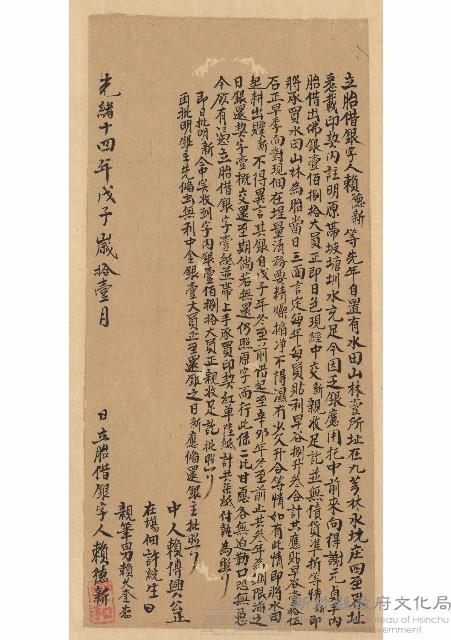 立胎借銀字人賴德新等先年自置有水田山林壹所址在九芎林水坑庄四至界址
悉載印契內註明原帶坡塘圳水充足今因乏銀應用托中前來向得謝元
胎借出佛銀壹佰捌拾大員正即日色現經中交新親收足訖並無債貨準折等情即
將承買水田山林為胎當日三面言定每年每員貼利早谷捌升合計共應貼早谷
石正早季向對現佃在埕量清務要精燥搧净不得濕冇少欠升合等情如有此情即將水田
起耕出贌新不得異言其銀自戊子年冬至前借起至辛卯年冬至前止共叁年為期限滿之
日銀還契字壹概交還至期倘若無還仍照原字而行此係二比甘愿各無迫勒口恐無憑
今欲有憑立胎借銀字壹紙並帶上手承買印契紅單陸紙計共柒紙付執為照
即日批明新仝中實收到字內銀壹佰捌拾大員正親收足訖批照
再批明銀主先備出無利中金銀壹大員正至還銀之日新應備還銀主批照
中人賴傳興
在場佃許統生
親筆男賴久奎
光緒十四年戊子歲拾壹月 日立胎借銀字人賴德新
新竹縣政府文化局
Cultural Affairs Bureau of Hsinchu